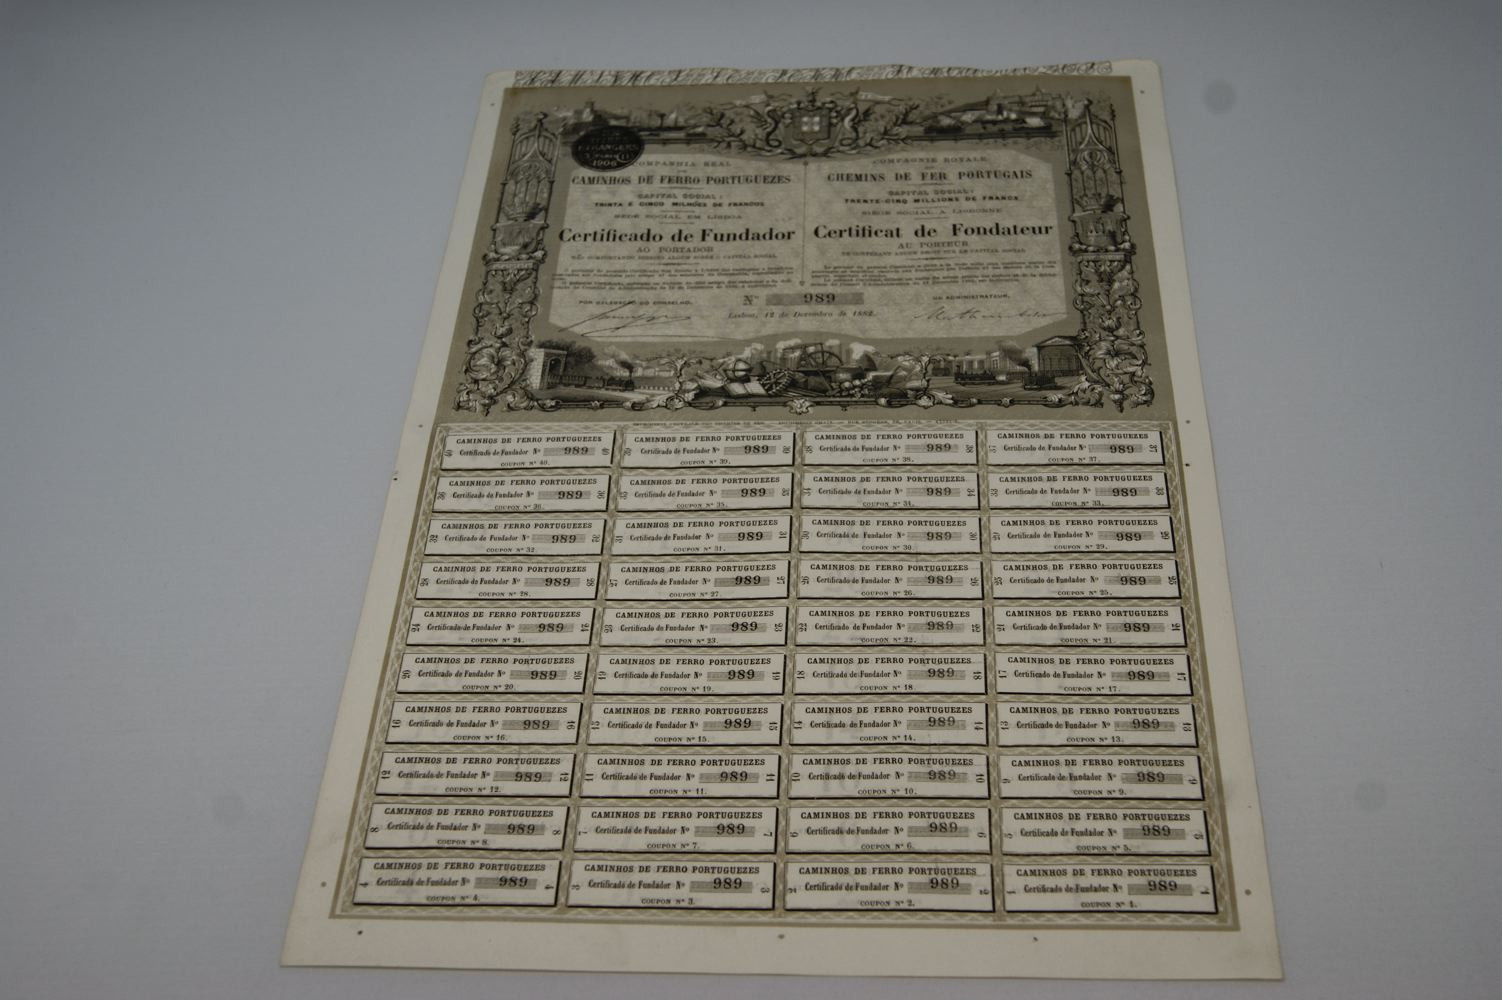 ETRANGERS
PARIS
1906
COMPANHIA REAL
CAMINHOS DE FERRO PORTUGUEZES
CAPITAL SOCIAL:
TRINTA E CINCO MILHÕES DE FRANCOS
SEDE SOCIAL EM LISBOA
Certificado de Fundador
AO PORTADOR
NÃO COMPORTANDO DIREITO ALGUM SOBRE O CAPITAL SOCIAL
POR DELEGAÇÃO DO CONSELHO,
COMPAGNIE ROYALE
CHEMINS DE FER PORTUGAIS
CAPITAL SOCIAL:
TRENTE-CINQ MILLIONS DE FRANCS
SIÈGE SOCIAL A LISBONNE
Certificat de Fondateur
AU PORTEUR
NE CONFÉRANT AUCUN DROIT SUR LE CAPITAL SOCIAL
UN ADMINISTRATEUR,
Nº 989
Lisboa, 12 de Dezembro de 1882.
CAMINHOS DE FERRO PORTUGUEZES CAMINHOS DE FERRO PORTUGUEZES CAMINHOS DE FERRO PORTUGUEZES CAMINHOS DE FERRO PORTUGUEZES
40 Certificado de Fundador Nº 989 40 39 Certificado de Fundador Nº 989 39 38 Certificado de Fundador Nº 989 38 37 Certificado de Fundador Nº 989 37
COUPON Nº 40. COUPON Nº 39. COUPON Nº 38. COUPON Nº 37.
CAMINHOS DE FERRO PORTUGUEZES CAMINHOS DE FERRO PORTUGUEZES CAMINHOS DE FERRO PORTUGUEZES CAMINHOS DE FERRO PORTUGUEZES
36 Certificado de Fundador Nº 989 36 35 Certificado de Fundador Nº 989 35 34 Certificado de Fundador Nº 989 34 33 Certificado de Fundador Nº 989 33
COUPON Nº 36. COUPON Nº 35. COUPON Nº 34. COUPON Nº 33.
CAMINHOS DE FERRO PORTUGUEZES CAMINHOS DE FERRO PORTUGUEZES CAMINHOS DE FERRO PORTUGUEZES CAMINHOS DE FERRO PORTUGUEZES
32 Certificado de Fundador Nº 989 32 31 Certificado de Fundador Nº 989 31 30 Certificado de Fundador Nº 989 30 29 Certificado de Fundador Nº 989 29
COUPON Nº 32. COUPON Nº 31. COUPON Nº 30. COUPON Nº 29.
CAMINHOS DE FERRO PORTUGUEZES CAMINHOS DE FERRO PORTUGUEZES CAMINHOS DE FERRO PORTUGUEZES CAMINHOS DE FERRO PORTUGUEZES
28 Certificado de Fundador Nº 989 28 27 Certificado de Fundador Nº 989 27 26 Certificado de Fundador Nº 989 26 25 Certificado de Fundador Nº 989 25
COUPON Nº 28. COUPON Nº 27. COUPON Nº 26. COUPON Nº 25.
CAMINHOS DE FERRO PORTUGUEZES CAMINHOS DE FERRO PORTUGUEZES CAMINHOS DE FERRO PORTUGUEZES CAMINHOS DE FERRO PORTUGUEZES
24 Certificado de Fundador Nº 989 24 23 Certificado de Fundador Nº 989 23 22 Certificado de Fundador Nº 989 22 21 Certificado de Fundador Nº 989 21
COUPON Nº 24. COUPON Nº 23. COUPON Nº 22. COUPON Nº 21.
CAMINHOS DE FERRO PORTUGUEZES CAMINHOS DE FERRO PORTUGUEZES CAMINHOS DE FERRO PORTUGUEZES CAMINHOS DE FERRO PORTUGUEZES
20 Certificado de Fundador Nº 989 20 19 Certificado de Fundador Nº 989 19 18 Certificado de Fundador Nº 989 18 17 Certificado de Fundador Nº 989 17
COUPON Nº 20. COUPON Nº 19. COUPON Nº 18. COUPON Nº 17.
CAMINHOS DE FERRO PORTUGUEZES CAMINHOS DE FERRO PORTUGUEZES CAMINHOS DE FERRO PORTUGUEZES CAMINHOS DE FERRO PORTUGUEZES
16 Certificado de Fundador Nº 989 16 15 Certificado de Fundador Nº 989 15 14 Certificado de Fundador Nº 989 14 13 Certificado de Fundador Nº 989 13
COUPON Nº 16. COUPON Nº 15. COUPON Nº 14. COUPON Nº 13.
CAMINHOS DE FERRO PORTUGUEZES CAMINHOS DE FERRO PORTUGUEZES CAMINHOS DE FERRO PORTUGUEZES CAMINHOS DE FERRO PORTUGUEZES
12 Certificado de Fundador Nº 989 12 11 Certificado de Fundador Nº 989 11 10 Certificado de Fundador Nº 989 10 9 Certificado de Fundador Nº 989 9
COUPON Nº 12. COUPON Nº 11. COUPON Nº 10. COUPON Nº 9.
CAMINHOS DE FERRO PORTUGUEZES CAMINHOS DE FERRO PORTUGUEZES CAMINHOS DE FERRO PORTUGUEZES CAMINHOS DE FERRO PORTUGUEZES
8 Certificado de Fundador Nº 989 8 7 Certificado de Fundador Nº 989 7 6 Certificado de Fundador Nº 989 6 5 Certificado de Fundador Nº 989 5
COUPON Nº 8. COUPON Nº 7. COUPON Nº 6. COUPON Nº 5.
CAMINHOS DE FERRO PORTUGUEZES CAMINHOS DE FERRO PORTUGUEZES CAMINHOS DE FERRO PORTUGUEZES CAMINHOS DE FERRO PORTUGUEZES
4 Certificado de Fundador Nº 989 4 3 Certificado de Fundador Nº 989 3 2 Certificado de Fundador Nº 989 2 1 Certificado de Fundador Nº 989 1
COUPON Nº 4. COUPON Nº 3. COUPON Nº 2. COUPON Nº 1.